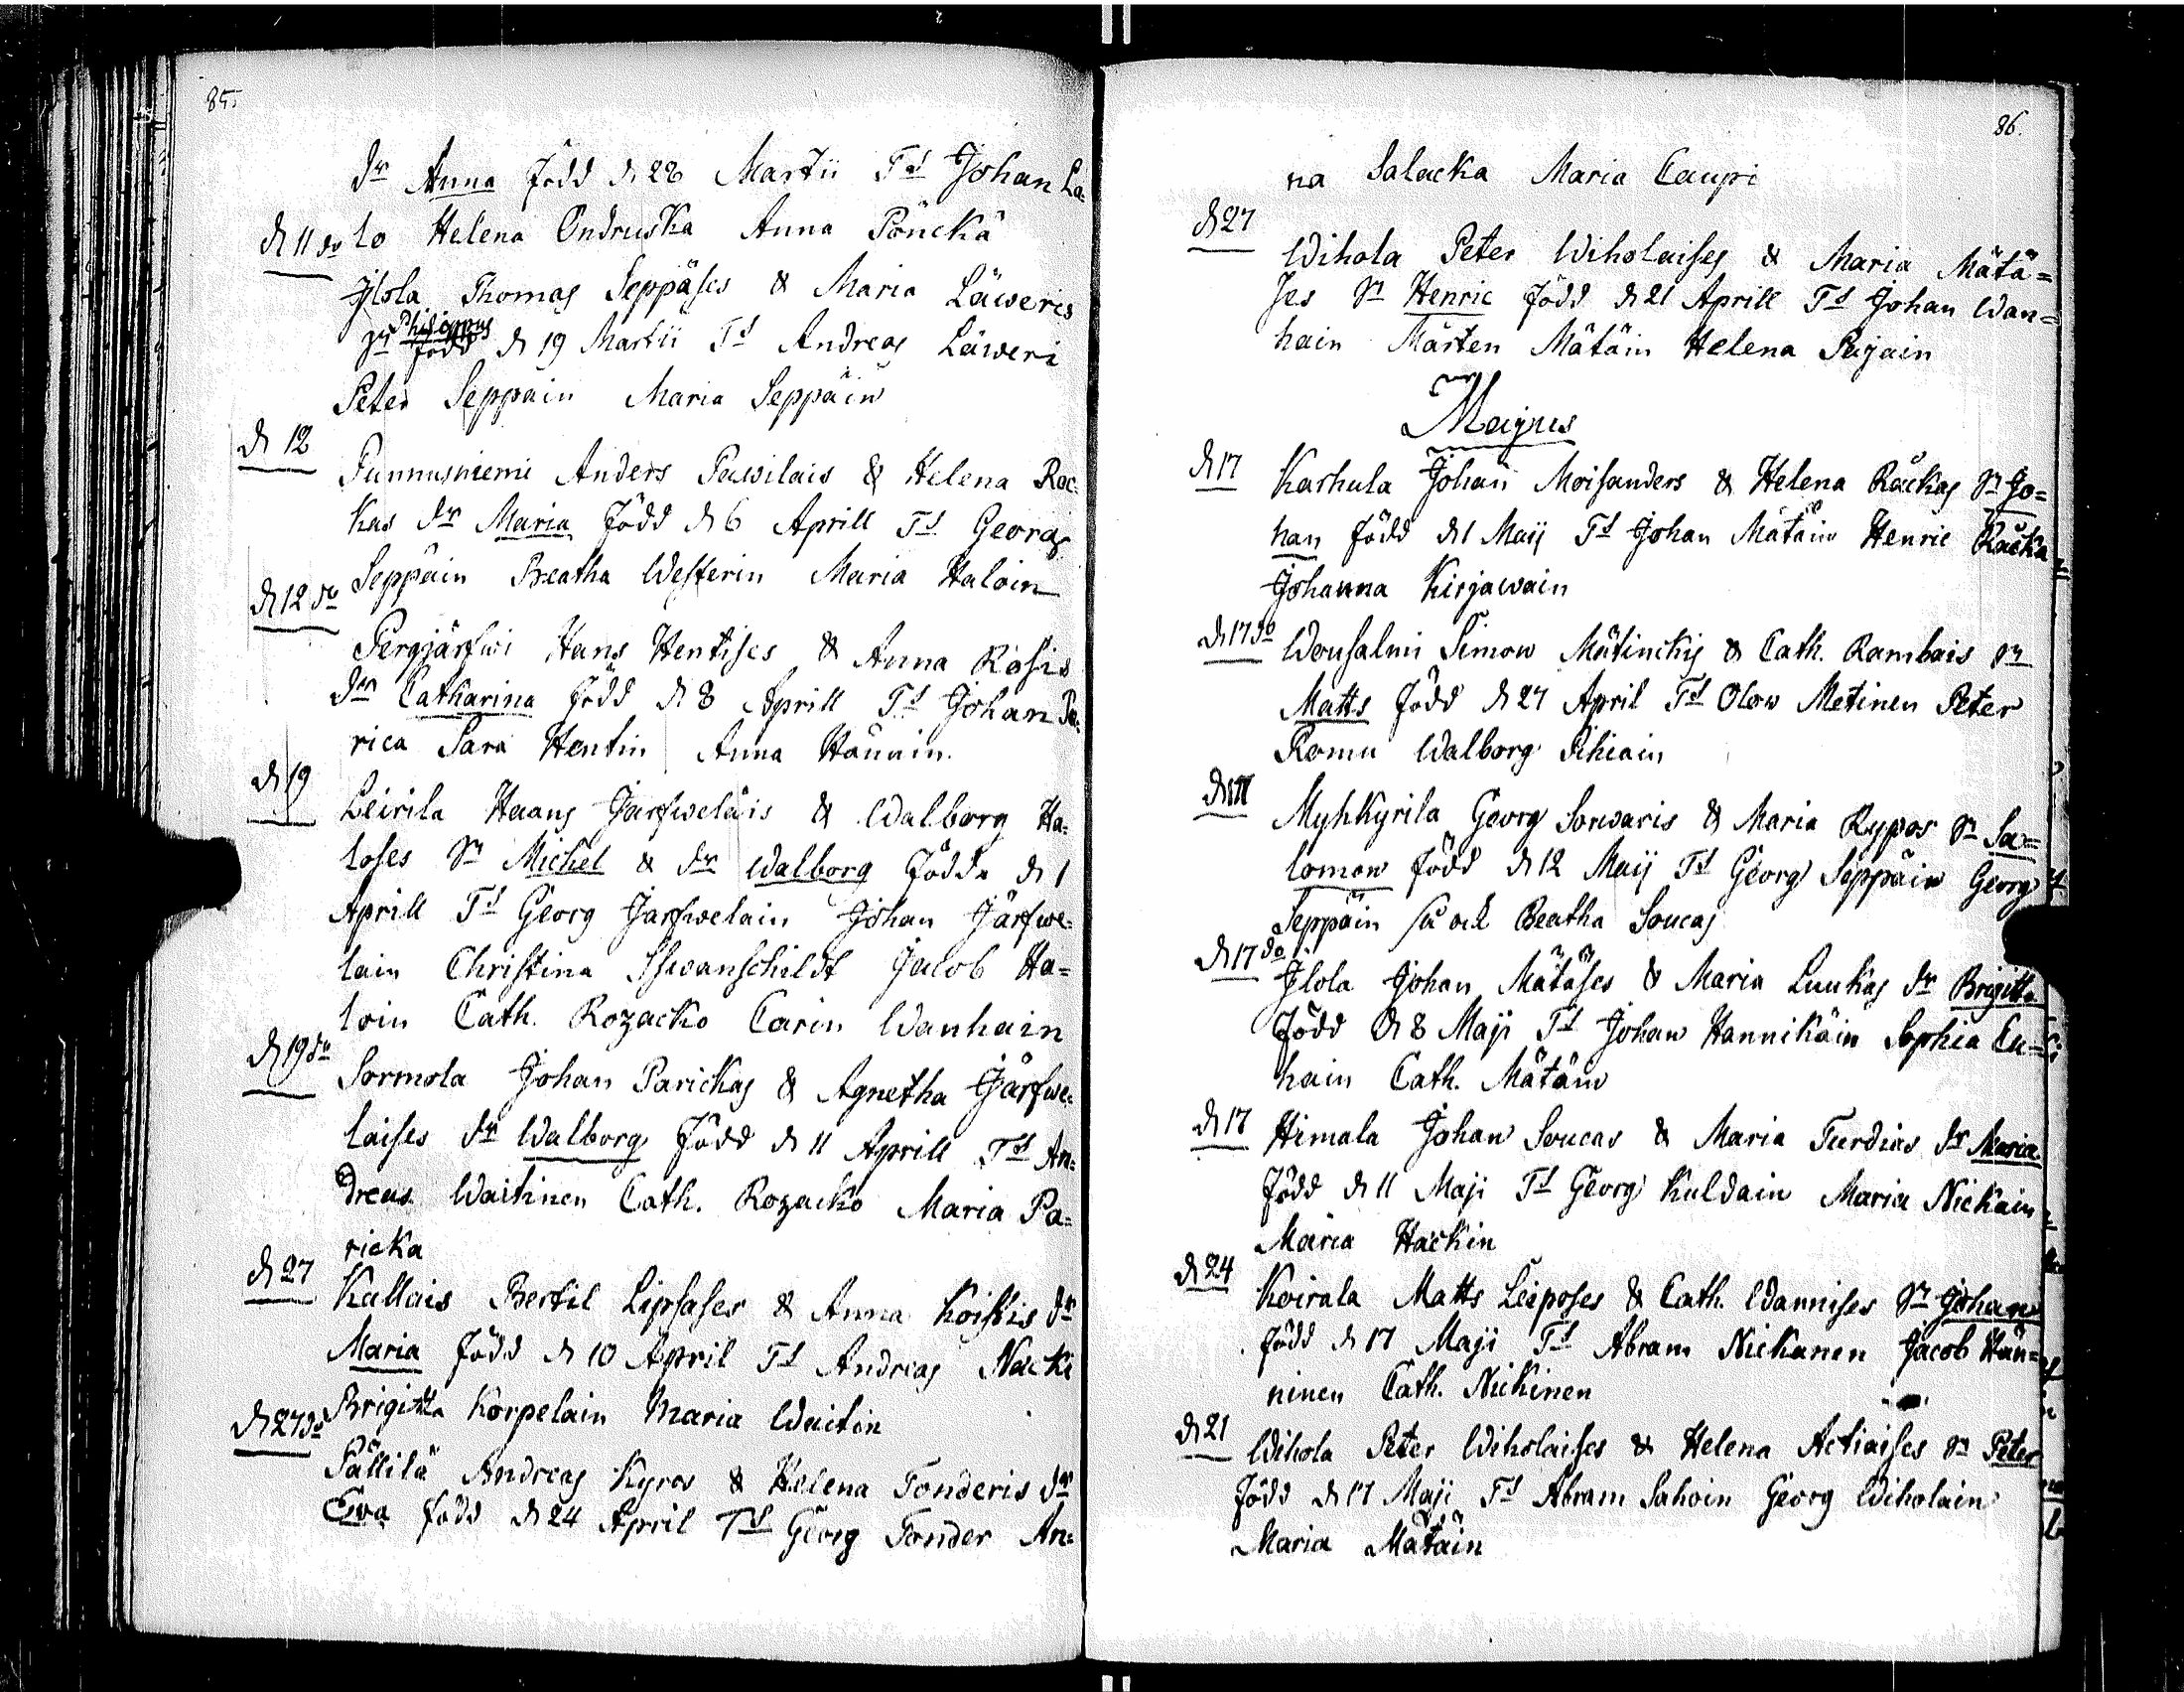 85.
dr Anna född d 28 Martii Ts Johan La-
d 11 do lo Helena Ondruska Anna Pönckä
Jlola Thomas Seppäses & Maria Läweris
Philippus
sn född d 19 Martii Ts Andreas Läweri
Peter Seppäin Maria Seppäin
d 12
Punnusniemi Anders Pawilais & Helena Roc-
kas dr Maria född d 6 Aprill Ts Georg
Seppäin Beatha Westerin Maria Haloin
d 12 do
Pergjärfwi Hans Hentises & Anna Rosis
dr Catharina född d 8 Aprill Ts Johan Pa-
rica Sara Hentin Anna Hänain.
d 19
Leirila Haans Jarfweläis & Walborg Ha-
loses Sn Michel & dr Walborg födda d 1
Aprill Ts Georg Jarfwelain Johan Järfwe-
lain Christina Swanschildt Jacob Ha=
loin Cath. Rozacko Carin Wanhain
d 19 do
Sormola Johan Parickas & Agnetha Järfwe-
laises dr Walborg född d 11 Aprill Ts An-
dreas Waitinen Cath. Rozacko Maria Pa=
ricka
d 27
Kallais Bertil Lipsases & Anna Koistis dr
Maria född d 10 April Ts Andreas Nacki
Brigitta Korpelain Maria Waitin
d 27 do
Pällilä Andreas Kyros & Helena Tonderis dr
Ewa född d 24 April Ts Georg Tonder An=
86.
na Salacka Maria Caupi
d 27
Wihola Peter Wiholaises & Maria Mätä=
ses Sn Henric född d 21 Aprill Ts Johan Wan=
hain Mårten Mätäin Helena Pajain
Majus
d 17 Karhula Johan Moisanders & Helena Räckas Sn Jo=
han född d 1 Maij Ts Johan Mätäin Henric Räcka
Johanna Kirjawain
d 17 do Wousalmi Simon Mätinckis & Cath. Rambais Sn
Matts född d 27 April Ts Olow Metinen Peter
Romu Walborg Pihiain
d 17 Myhkyrila Georg Sorwaris & Maria Rypos Sn Sa=
lomon född d 12 Maij Ts Georg Seppäin Georg
Seppäin så ock Beatha Soucas
d 17 do
Jlola Johan Mätäses & Maria Luukas dr Brigitta
född d 8 Maji Ts Johan Hannikäin Sophia Eu=
hain Cath. Mätäin
d 17 Himala Johan Soucas & Maria Turdias dr Maria
född d 11 Maji Ts Georg Kuldain Maria Nickain
Maria Hackin
d 24
Koirala Matts Leiposes & Cath. Wannises Sn Johan
född d 17 Maji Ts Abram Nickanen Jacob Hän=
ninen Cath. Nickinen
d 21
Wihola Peter Wiholaises & Helena Actiaises Sn Peter
född d 17 Maji Ts Abram Sahoin Georg Wiholain
Maria Mätäin